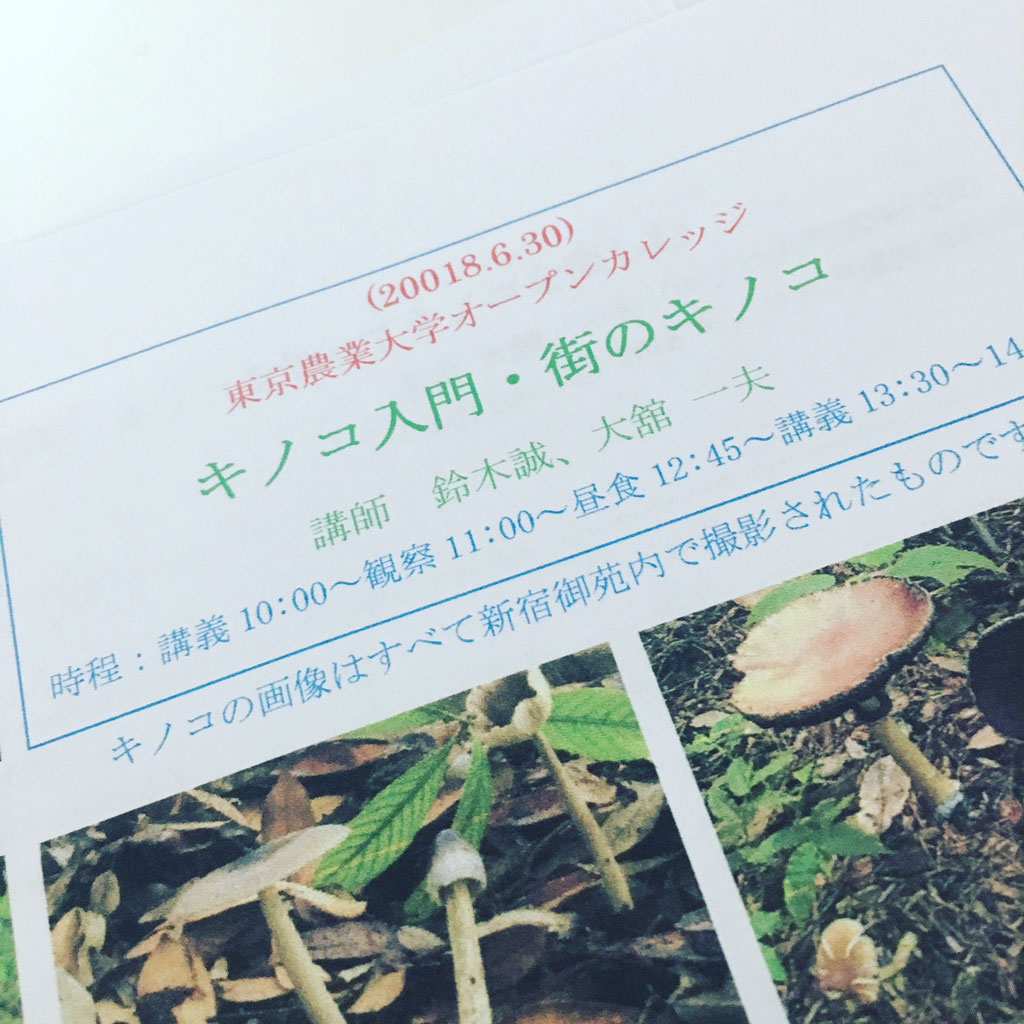 (20018.6.30)
東京農業大学オープンカレッジ
キノコ入門・街のキノコ
講師 鈴木誠、大舘 一夫
時程：講義 10:00～観察 11:00～昼食 12:45～講義 13:30～14
キノコの画像はすべて新宿御苑内で撮影されたものです